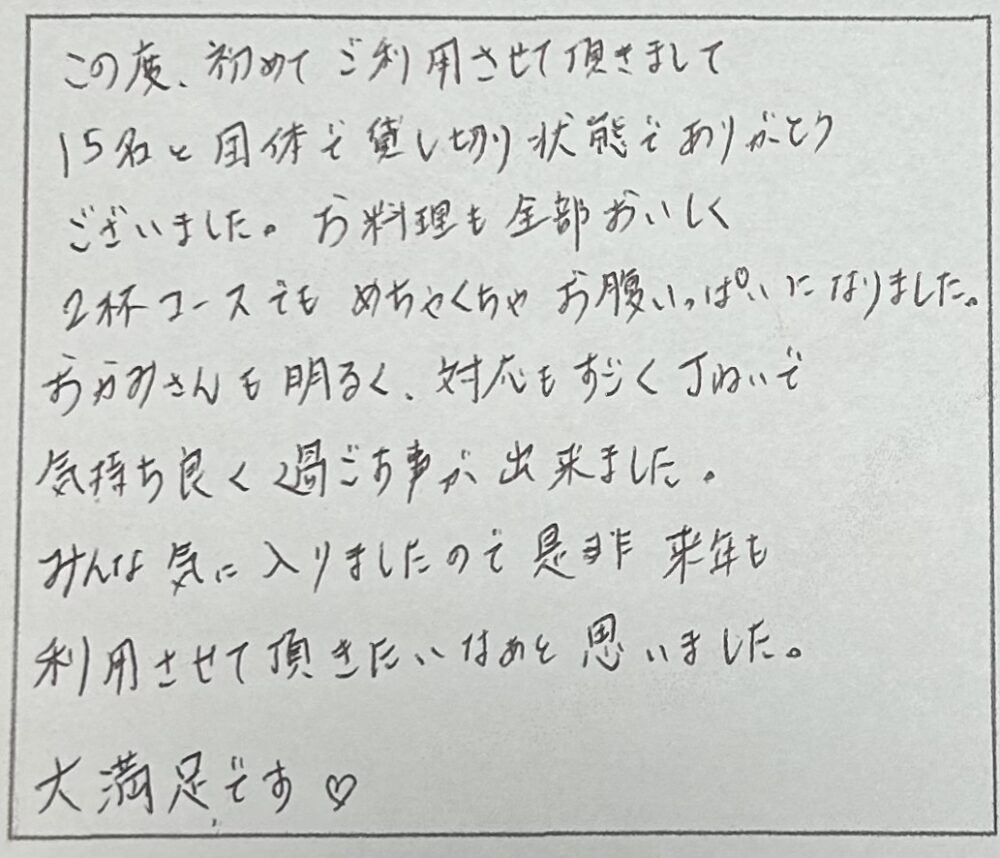 この度、初めてご利用させて頂きまして
15名と団体で貸し切り状態でありがとう
ございました。お料理も全部おいしく
2杯コースでも めちゃくちゃ お腹いっぱいになりました。
おかみさんも明るく、対応もすごく丁ねいで
気持ち良く過ごす事が出来ました。
みんな気に入りましたので是非 来年も
利用させて頂きたいなぁと思いました。
大満足です♡